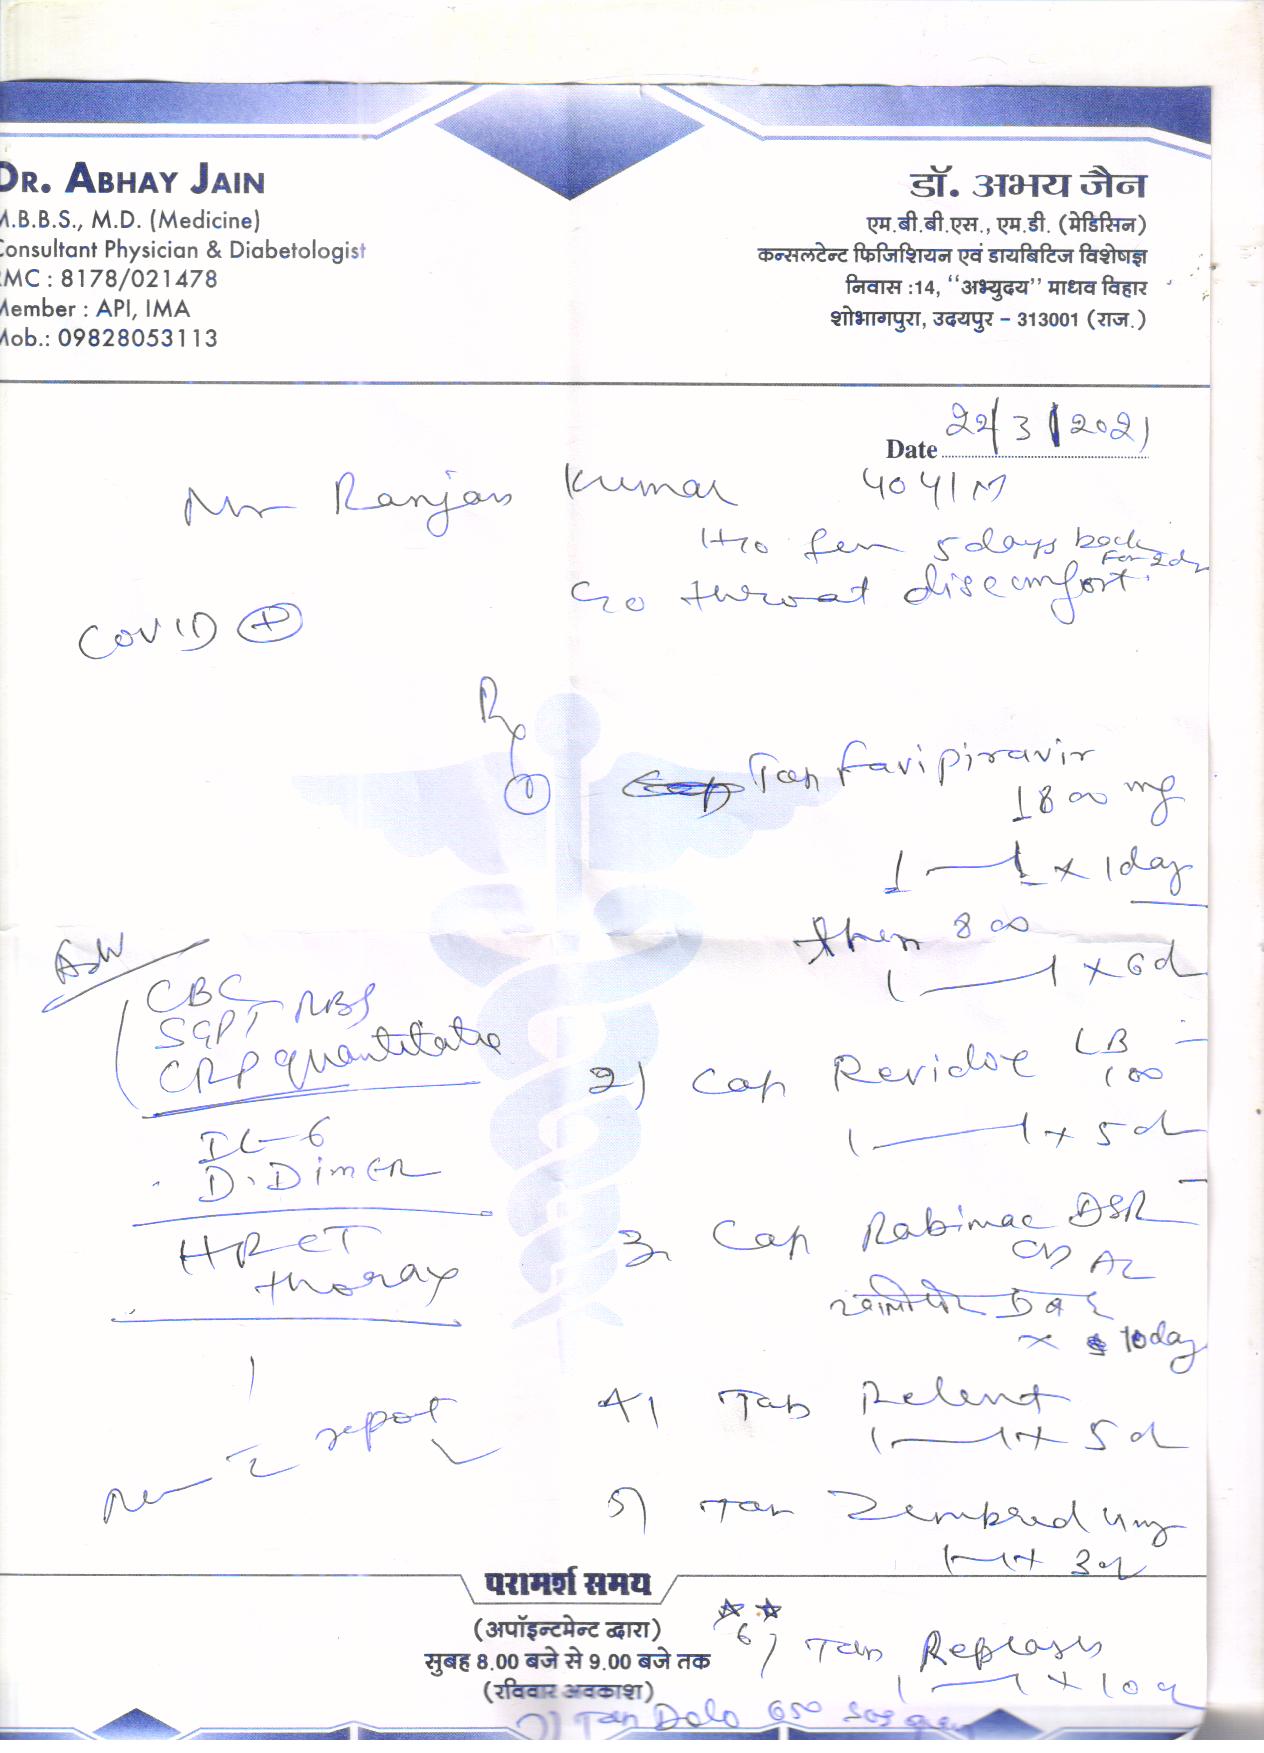 DR. ABHAY JAIN
M.B.B.S., M.D. (Medicine)
Consultant Physician & Diabetologist
RMC : 8178/021478
Member : API, IMA
Mob.: 09828053113
डॉ. अभय जैन
एम.बी.बी.एस., एम.डी. (मेडिसिन)
कन्सलटेन्ट फिजिशियन एवं डायबिटिज विशेषज्ञ
निवास :14, "अभ्युदय" माधव विहार
शोभागपुरा, उदयपुर - 313001 (राज.)
Date 22/3/2021
Mr Ranjan Kumar 40y/M
H/o fever 5 days back
For 2d
C/o throat discomfort
COVID (+)
Rx
1 Tab Favipiravir
1800 mg
1 — 1 x 1 day
then 800
1 — 1 x 6d
2) Cap LB
100
1 — 1 x 5d
3 Cap Rabimac DSR
OD AC
x 10 day
4) Tab Relent
1 — 1 x 5d
5) Tab Zempred 4mg
1 — 1 x 3d
6) Tab
1 — 1 x 10d
7) Tab Dolo 650 SOS
Adv
CBC
SGPT RBS
CRP quantitative
IL-6
D.Dimer
HRCT
thorax
report
परामर्श समय
(अपॉइन्टमेन्ट द्वारा)
सुबह 8.00 बजे से 9.00 बजे तक
(रविवार अवकाश)